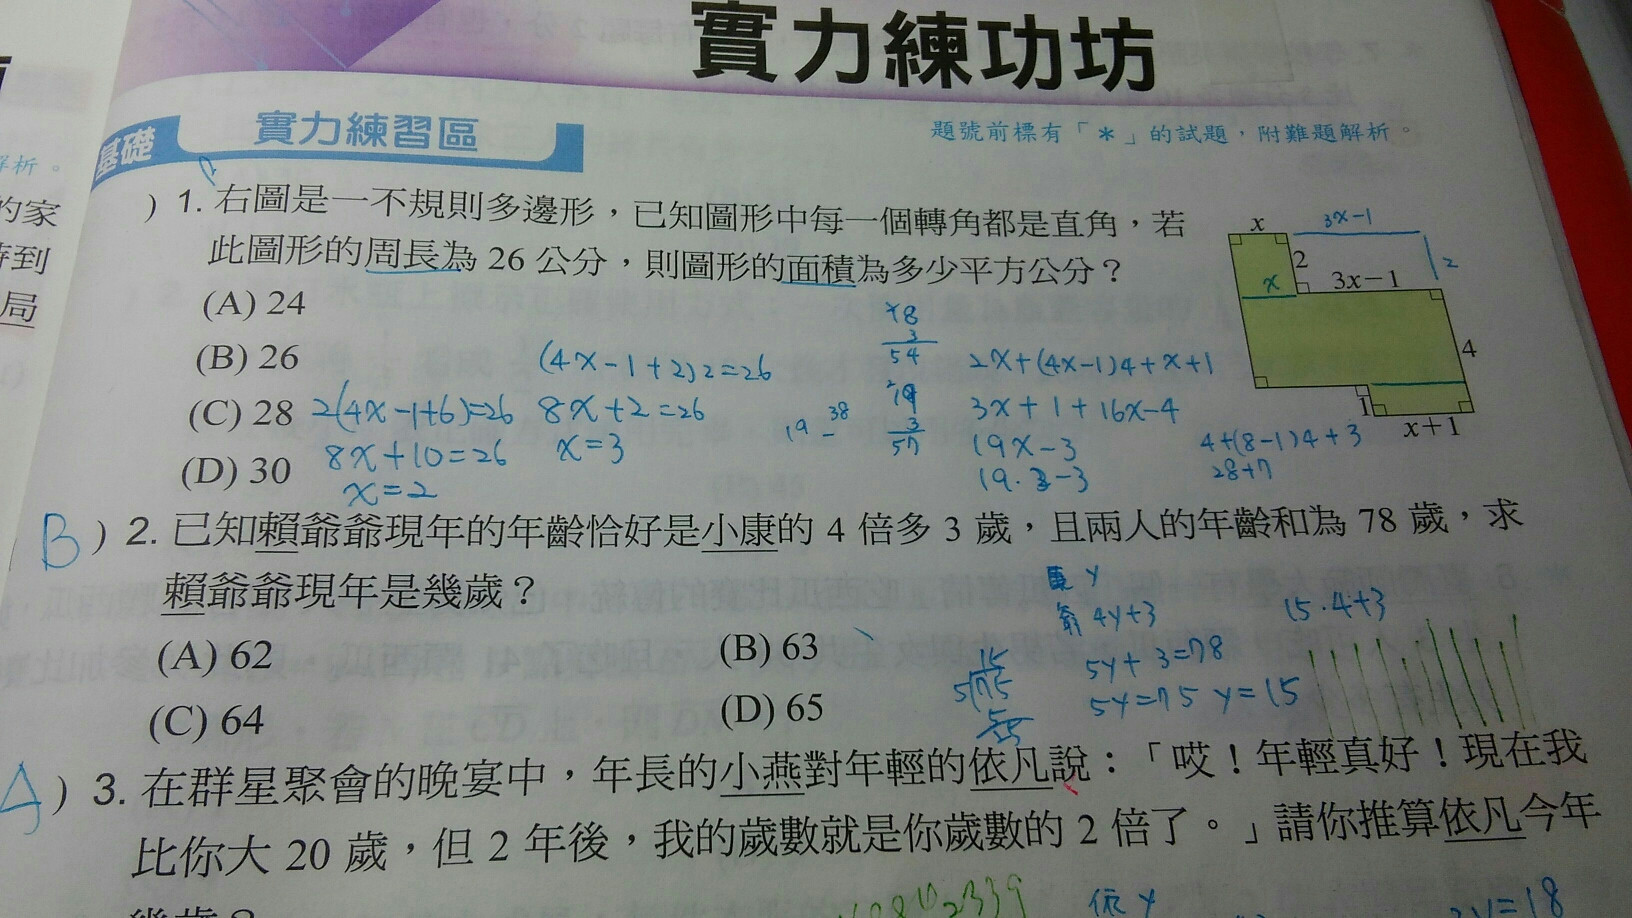 實力練功坊
基礎 實力練習區
題號前標有「＊」的試題，附難題解析。
解析。
的家
局
) 1. 右圖是一不規則多邊形，已知圖形中每一個轉角都是直角，若
此圖形的周長為 26 公分，則圖形的面積為多少平方公分？
x 3x-1
2 2
x 3x−1
4
1
x+1
(A) 24
(B) 26
(C) 28
(D) 30
(4x-1+2)2=26
2(4x-1+6)=26 8x+2=26
8x+10=26 x=3
x=2
18
3
54
19
3
57
19 - 38
2x+(4x-1)4+x+1
3x+1+16x-4
19x-3
4+(8-1)4+3
28+7
B ) 2. 已知賴爺爺現年的年齡恰好是小康的 4 倍多 3 歲，且兩人的年齡和為 78 歲，求
賴爺爺現年是幾歲？
(A) 62 (B) 63
(C) 64 (D) 65
康 y
爺 4y+3
15·4+3
5y+3=78
5y=75 y=15
A ) 3. 在群星聚會的晚宴中，年長的小燕對年輕的依凡說：「哎！年輕真好！現在我
比你大 20 歲，但 2 年後，我的歲數就是你歲數的 2 倍了。」請你推算依凡今年
幾歲？
依 y
y=18